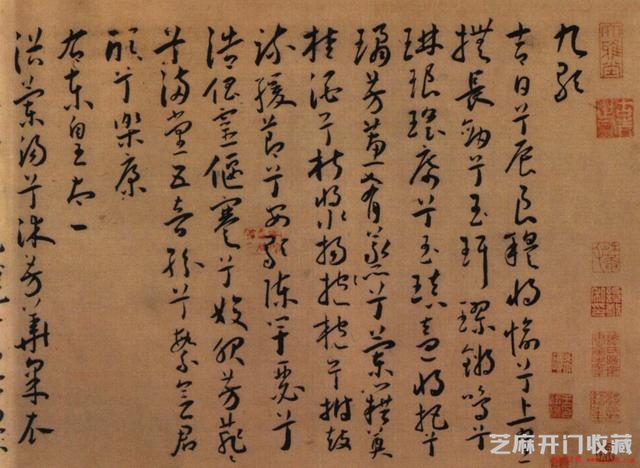 九歌
吉日兮辰良穆將愉兮上皇
撫長劍兮玉珥璆鏘鳴兮
琳琅瑤席兮玉瑱盍將把兮
瓊芳蕙肴蒸兮蘭藉奠
桂酒兮椒漿揚枹兮拊鼓
疏緩節兮安歌陳竽瑟兮
浩倡靈偃蹇兮姣服芳菲〻
兮滿堂五音紛兮繁會君
欣兮樂康
右東皇太一
浴蘭湯兮沐芳華采衣
芝麻开门收藏